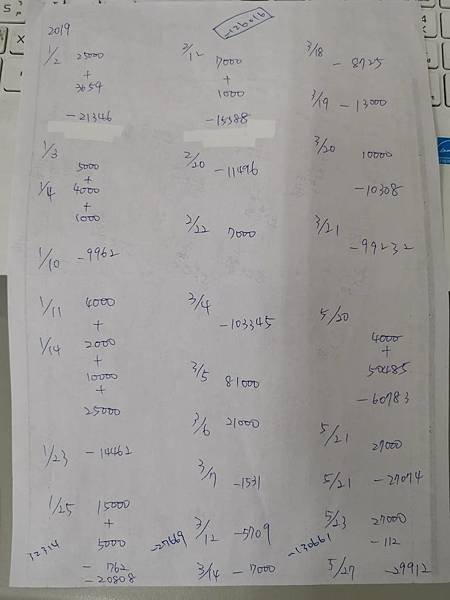 2019
1/2 25000
+
3654
-21346
1/3
5000
+
1/4 4000
+
1000
1/10 -9962
1/11 4000
+
1/14 2000
+
10000
+
25000
1/23 -14462
1/25 15000
+
5000
12314
-762
-20808
-126016
2/12 7000
+
1000
-15388
2/20 -11496
2/22 7000
3/4
-103345
3/5 81000
3/6 21000
3/7 -1531
-27669
3/12 -5709
3/14 -7000
3/18 -8725
3/19 -13000
3/20 10000
-10308
3/21
-99232
5/20
4000
+
50485
-60783
5/21 27000
5/21 -27074
5/23 27000
-130661
-112
5/27 -29912